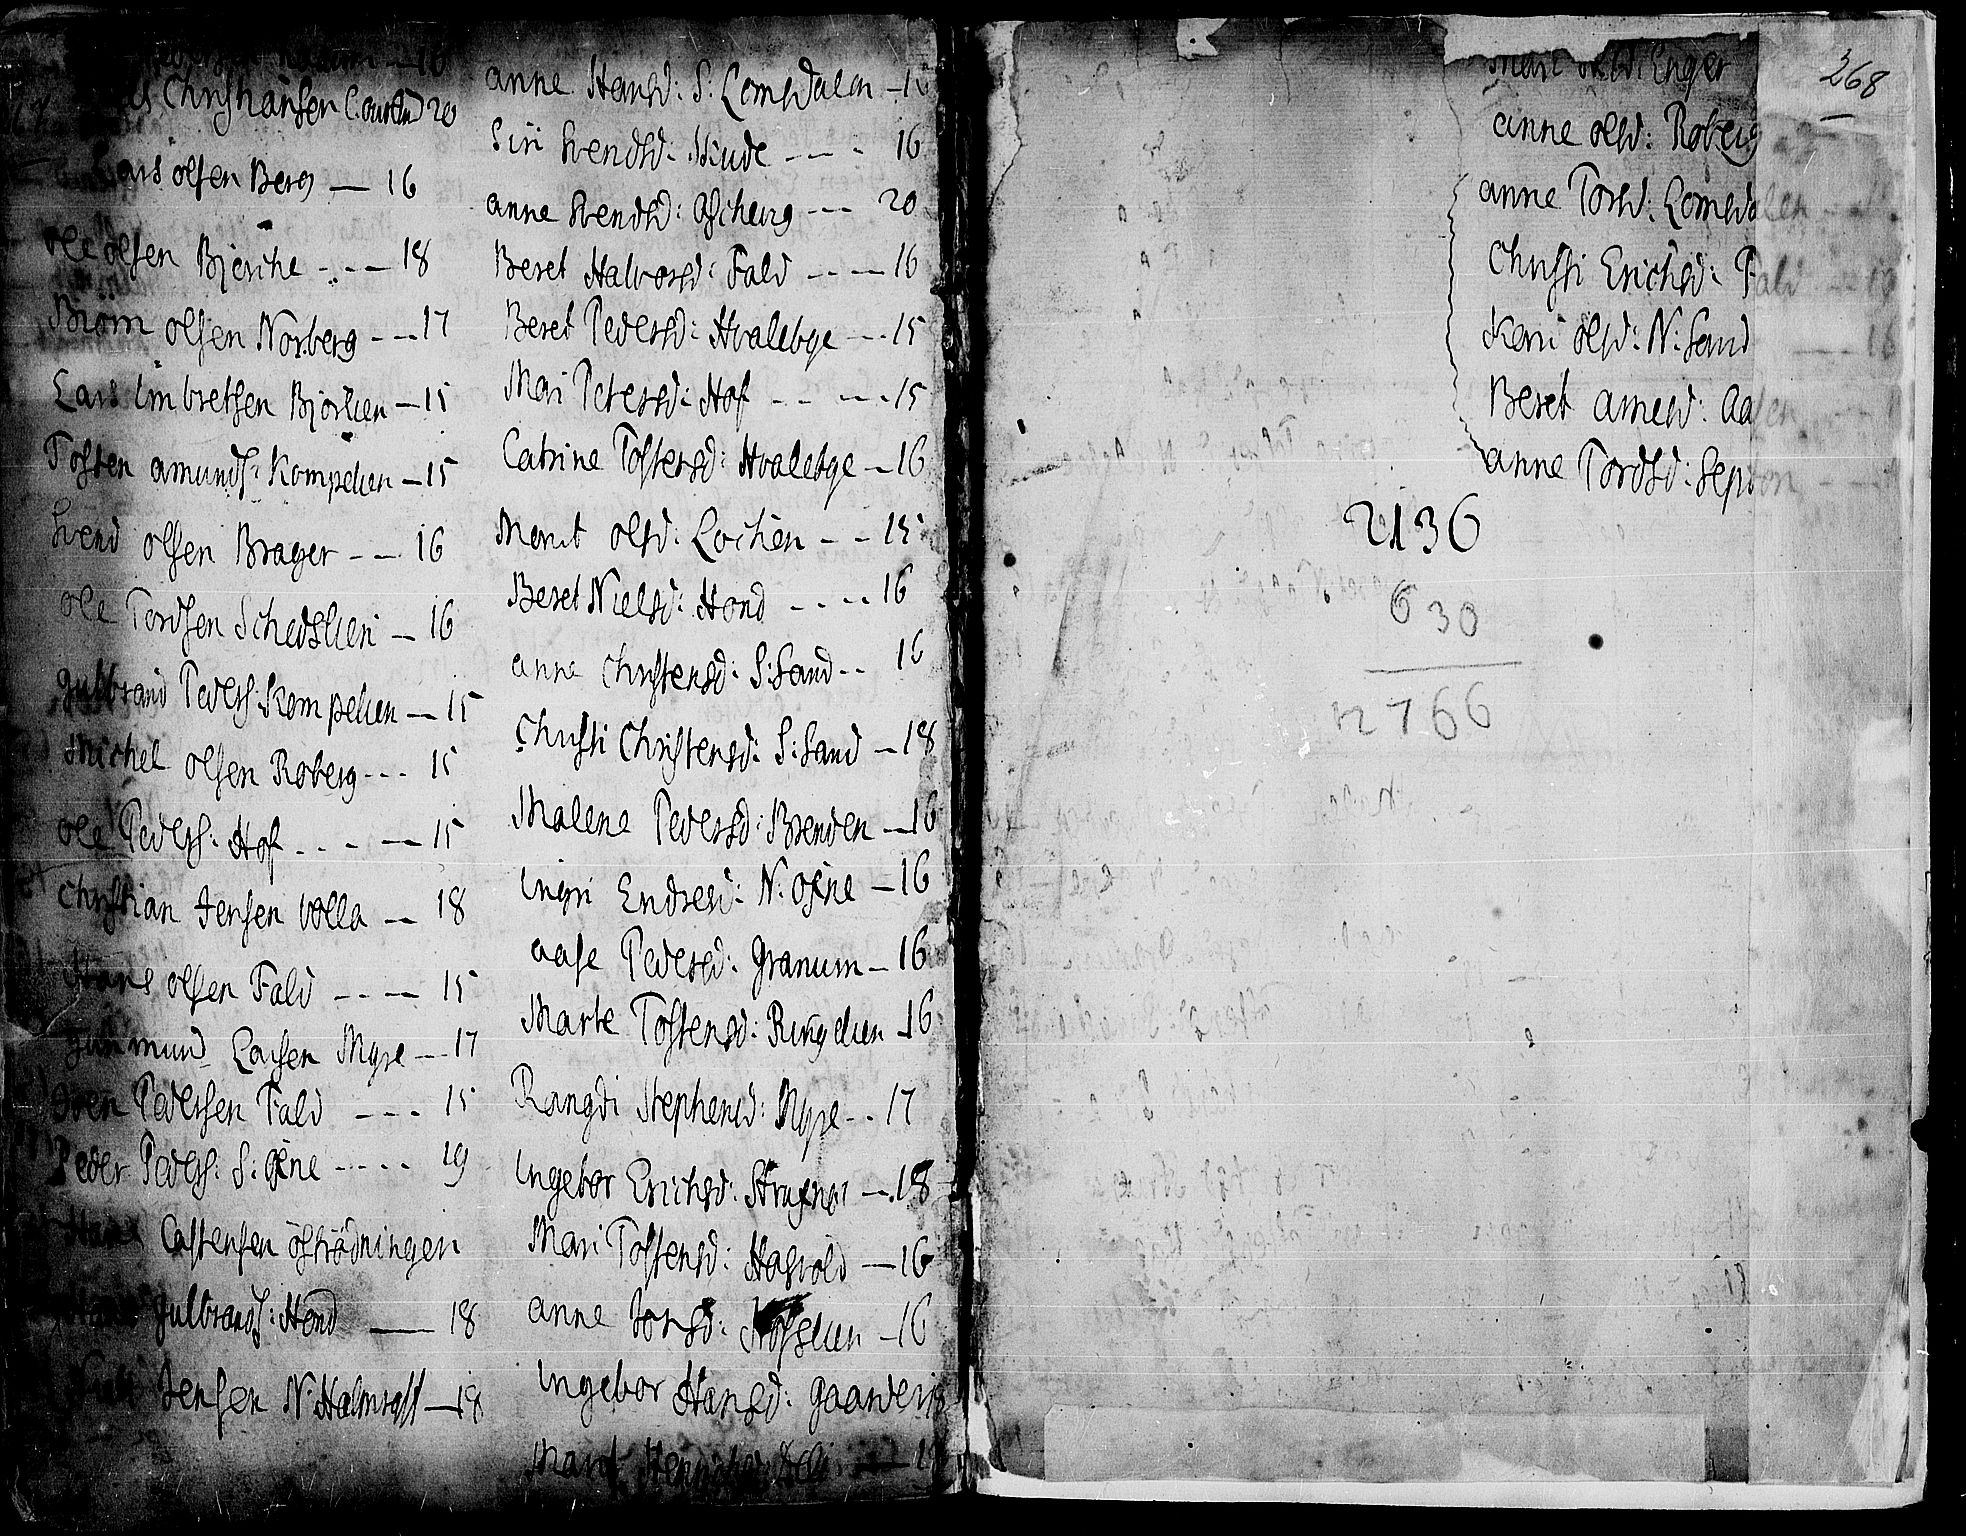 Christiansen 20
Lars olsen Berg — 16
ole olsen Bjerche - - - 18
Biörn olsen Norberg - - 17
Lars Embretsen Bjorlien — 15
Tosten amunds: Kompelien — 15
Svend olsen Brager - - 16
ole Tordsen Schedslien — 16
Gulbrand Peders: Kompelien — 15
Michel olsen Roberg - - - 15
ole Peders: Hof - - - — 15
Christian Jensen Volla — 18
Hans olsen Fald - - - — 15
Gunmund Larsen Myre - - 17
Iven Pedersen Fald - - - 15
Peder Peders: S: Öine - - - - - 19
Hans Castensen
Gulbrands: Hond — 18
Jensen N: — 18
anne Hansd: S: Lomsdalen - 16
Siri Svendsd: Hinde - - - - 16
anne Svendsd: - - - 20
Beret Halvorsd: Fald - - - 16
Beret Pedersd: Hvalebye - - - 15
Mari Petersd: Hof - - - - - 15
Catrine Tostensd: Hvalebye — 16
Marit olsd: Lochen - - 15
Beret Nielsd: Hond - - - - 16
anne Christensd: S: Sand - - 16
Christi Christensd: S: Sand — 18
Malene Pedersd: Brenden — 16
Ingri Endresd: N. Öine — 16
aase Pedersd: Granum — 16
Marte Tostensd: Ringelien - 16
Rangdi Stephensd: Myre - - 17
Ingebor Erichsd: — 18
Mari Tostensd: Hasvold — 16
anne — 16
Ingebor Hansd:
Marit
368
Enger
anne olsd: Roberg
anne Torsd: Lomsdalen
Christi Erichsd: Fald - - 19
Kari olsd: N: Sand — 16
Beret arnesd: Aasen
anne Tordsd:
2136
630
2766